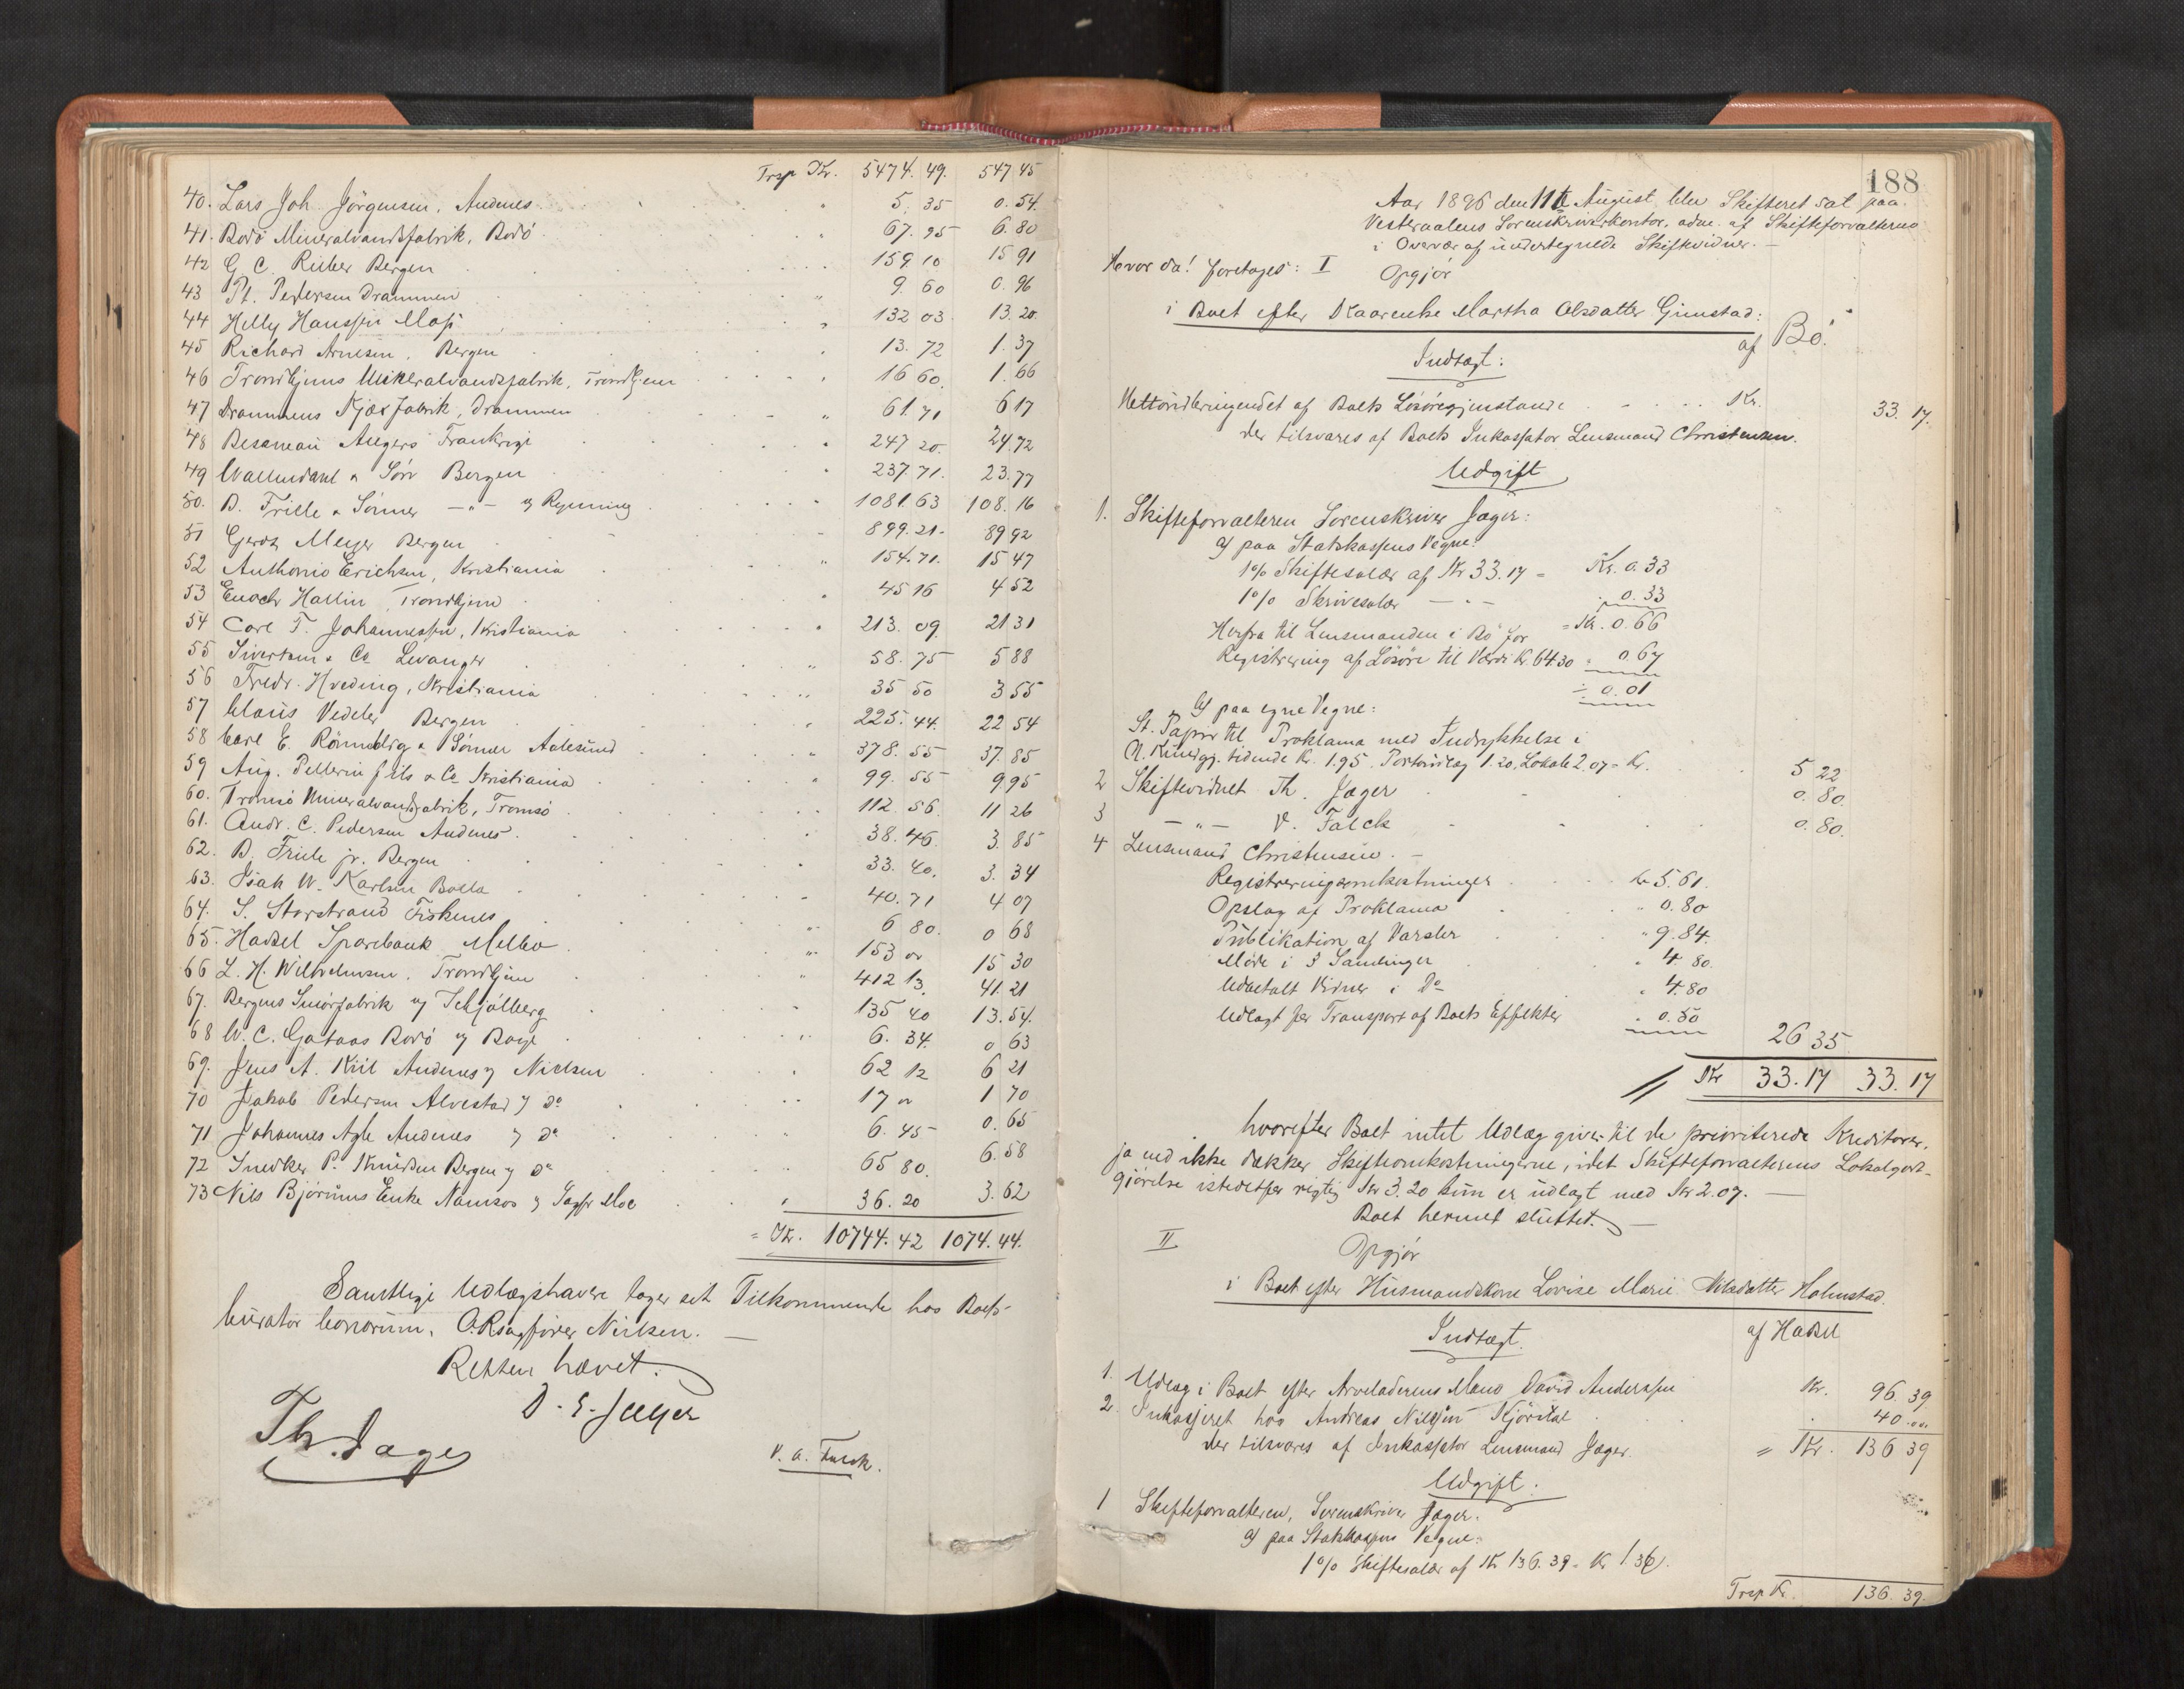 Trsp Kr. 5474.49. 547 45
40. Lars Joh. Jörgensen, Andenes " 5. 35 0.54.
41. Bodö Mineralvandsfabrik, Bodö " 67.95 6.80
42 G C. Rieber Bergen 159 10 15 91
43 Pt. Pedersen Drammen " 9.60 0.96
44 Helly Hanssen Moss " 132 03 13.20
45 Richard Arnesen, Bergen " 13.72 1.37
46 Trondhjems Mineralvandsfabrik, Trondhjem " 16 60. 1.66
47 Drammens Kjæxfabrik, Drammen " 61.71 6 17
48 Besaneau Angers Frankrige " 247 20. 24.72
49 Wallendahl & Sön Bergen " 237.71. 23.77
50. D. Friele & Sönner —"— 1081.63 108.16
51 Gerdt Meyer Bergen " 899.21. 89 92
52 Anthonio Erichsen, Kristiania " 154.71. 15 47
53 Enoch Hallin, Trondhjem " 45 16 4 52
54 Carl F. Johannessen, Kristiania " 213.09 21 31
55 Sivertsen & Co Levanger " 58.75 5 88
56 Fredr. Hveding, Kristiania " 35 50 3 55
57 Claus Vedeler Bergen " 225.44. 22 54
58 Carl E. Rönneberg & Sönner Aalesund " 378.55 37.85
59 Aug. Pellerin fils & Co Kristiania " 99.55 9 95
60. Tromsö Mineralvandfabrik, Tromsö " 112.56. 11 26
61. Andr. C. Pedersen Andenes. 38.46. 3.85
62. D. Friele jr. Bergen 33.40. 3.34
63. Isak W. Karlsen 40.71 4 07
64. S. Storstrand Fiskenes " 6 80. 0 68
65. Hadsel Sparebank Melbo " 153 " 15 30
66 L. H. Wilhelmsen. Trondhjem " 412 13. 41.21
67. Bergens Smörfabrik 135 40 13.54.
68 W. C. Gataas Bodö " 6.34. 0 63
69. Jens A. Kiil Andenes Nielsen 62 12 6 21
70 Jakob Pedersen Alvestad Do 17 " 1 70
71 Johannes Agle Andenes Do 6.45 0.65
72 Snedker P. Knudsen Bergen Do 65 80. 6.58
73 Nils Björums Enke Namsos Sagfr Moe 36.20 3.62
= Kr. 10744.42 1074.44.
Samtlige Udlægshavere tager sit Tilkommende hos Boets
curator bonorum, O.Rsagfører Nielsen. —
Retten hævet.
D. E. Jæger
Th. Jæger
V. A. Falck.
188
Aar 1896 den 11te August blev Skifteret sat paa
Vesteraalens Sorenskriverkontor, adm. af Skifteforvalteren
i Overvær af undertegnede Skiftevidner. —
Hvor da! foretoges: I Opgjør
i Boet efter Kaarenke Martha Olsdatter Gimstad:
af Bö.
Indtægt:
Nettoudbringendet af Boets Lösöregjenstande Kr. 33.17.
der tilsvares af Boets Inkassator Lensmand Christensen.
Udgift
1. Skifteforvalteren Sorenskriver Jæger:
a) paa Statskassens Vegne:
1% Skiftesalær af Kr 33.17 = Kr. 0.33
1% Skrivesalær —"— " 0.33
= Kr. 0.66
Herfra til Lensmanden i Bö for
Registrering af Lösöre til Værdi Kr. 64.30 " 0.67
÷ 0.01
b) paa egne Vegne:
St. Papir til Proklama med Indrykkelse i
N. Kundgj. tidende Kr. 1.95, Portoudlæg 1.20, Lokale 2.07 = Kr. 5 22
2 Skiftevidnet Th. Jæger 0.80.
3 —"— V. Falck 0.80.
4 Lensmand Christensen. —
Registreringsomkostninger Kr 5.61.
Opslag af Proklama " 0.80
Publikation af Varsler " 9.84.
Möde i 3 Samlinger " 4.80.
Udbetalt Vidner i Do " 4.80
Udlagt for Transport af Boets Effekter " 0.50
26 35
Kr 33.17 33.17
hvorefter Boet intet Udlæg giver til de prioriterede Kreditorer,
ja end ikke dækker Skifteomkostningerne, idet Skifteforvalterens Lokalgodt-
gjörelse istedetfor rigtig Kr 3.20 kun er udlagt med Kr 2.07. —
Boet hermed sluttet. —
II Opgjør
i Boet efter Husmandskone Lovise Marie Nilsdatter Holmstad.
af Hadsel
Indtægt.
1. Udlæg i Boet efter Arveladerens Mand David Anderssen Kr. 96.39
2. Inkasseret hos Andreas Nilssen " 40."
der tilsvares af Inkassator Lensmand Jæger. = Kr. 136 39
Udgift:
1 Skifteforvalteren, Sorenskriver Jæger.
a) paa Statskassens Vegne:
1% Skiftesalær af Kr 136.39 = Kr 1.36.
Trsp Kr. 136.39.